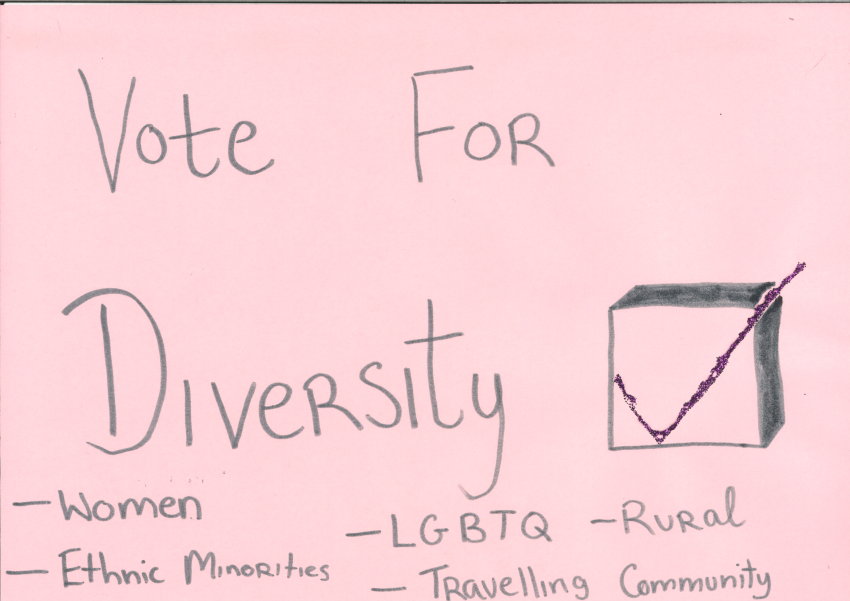 Vote For
Diversity
– Women
– LGBTQ
– Rural
– Ethnic Minorities
– Travelling Community